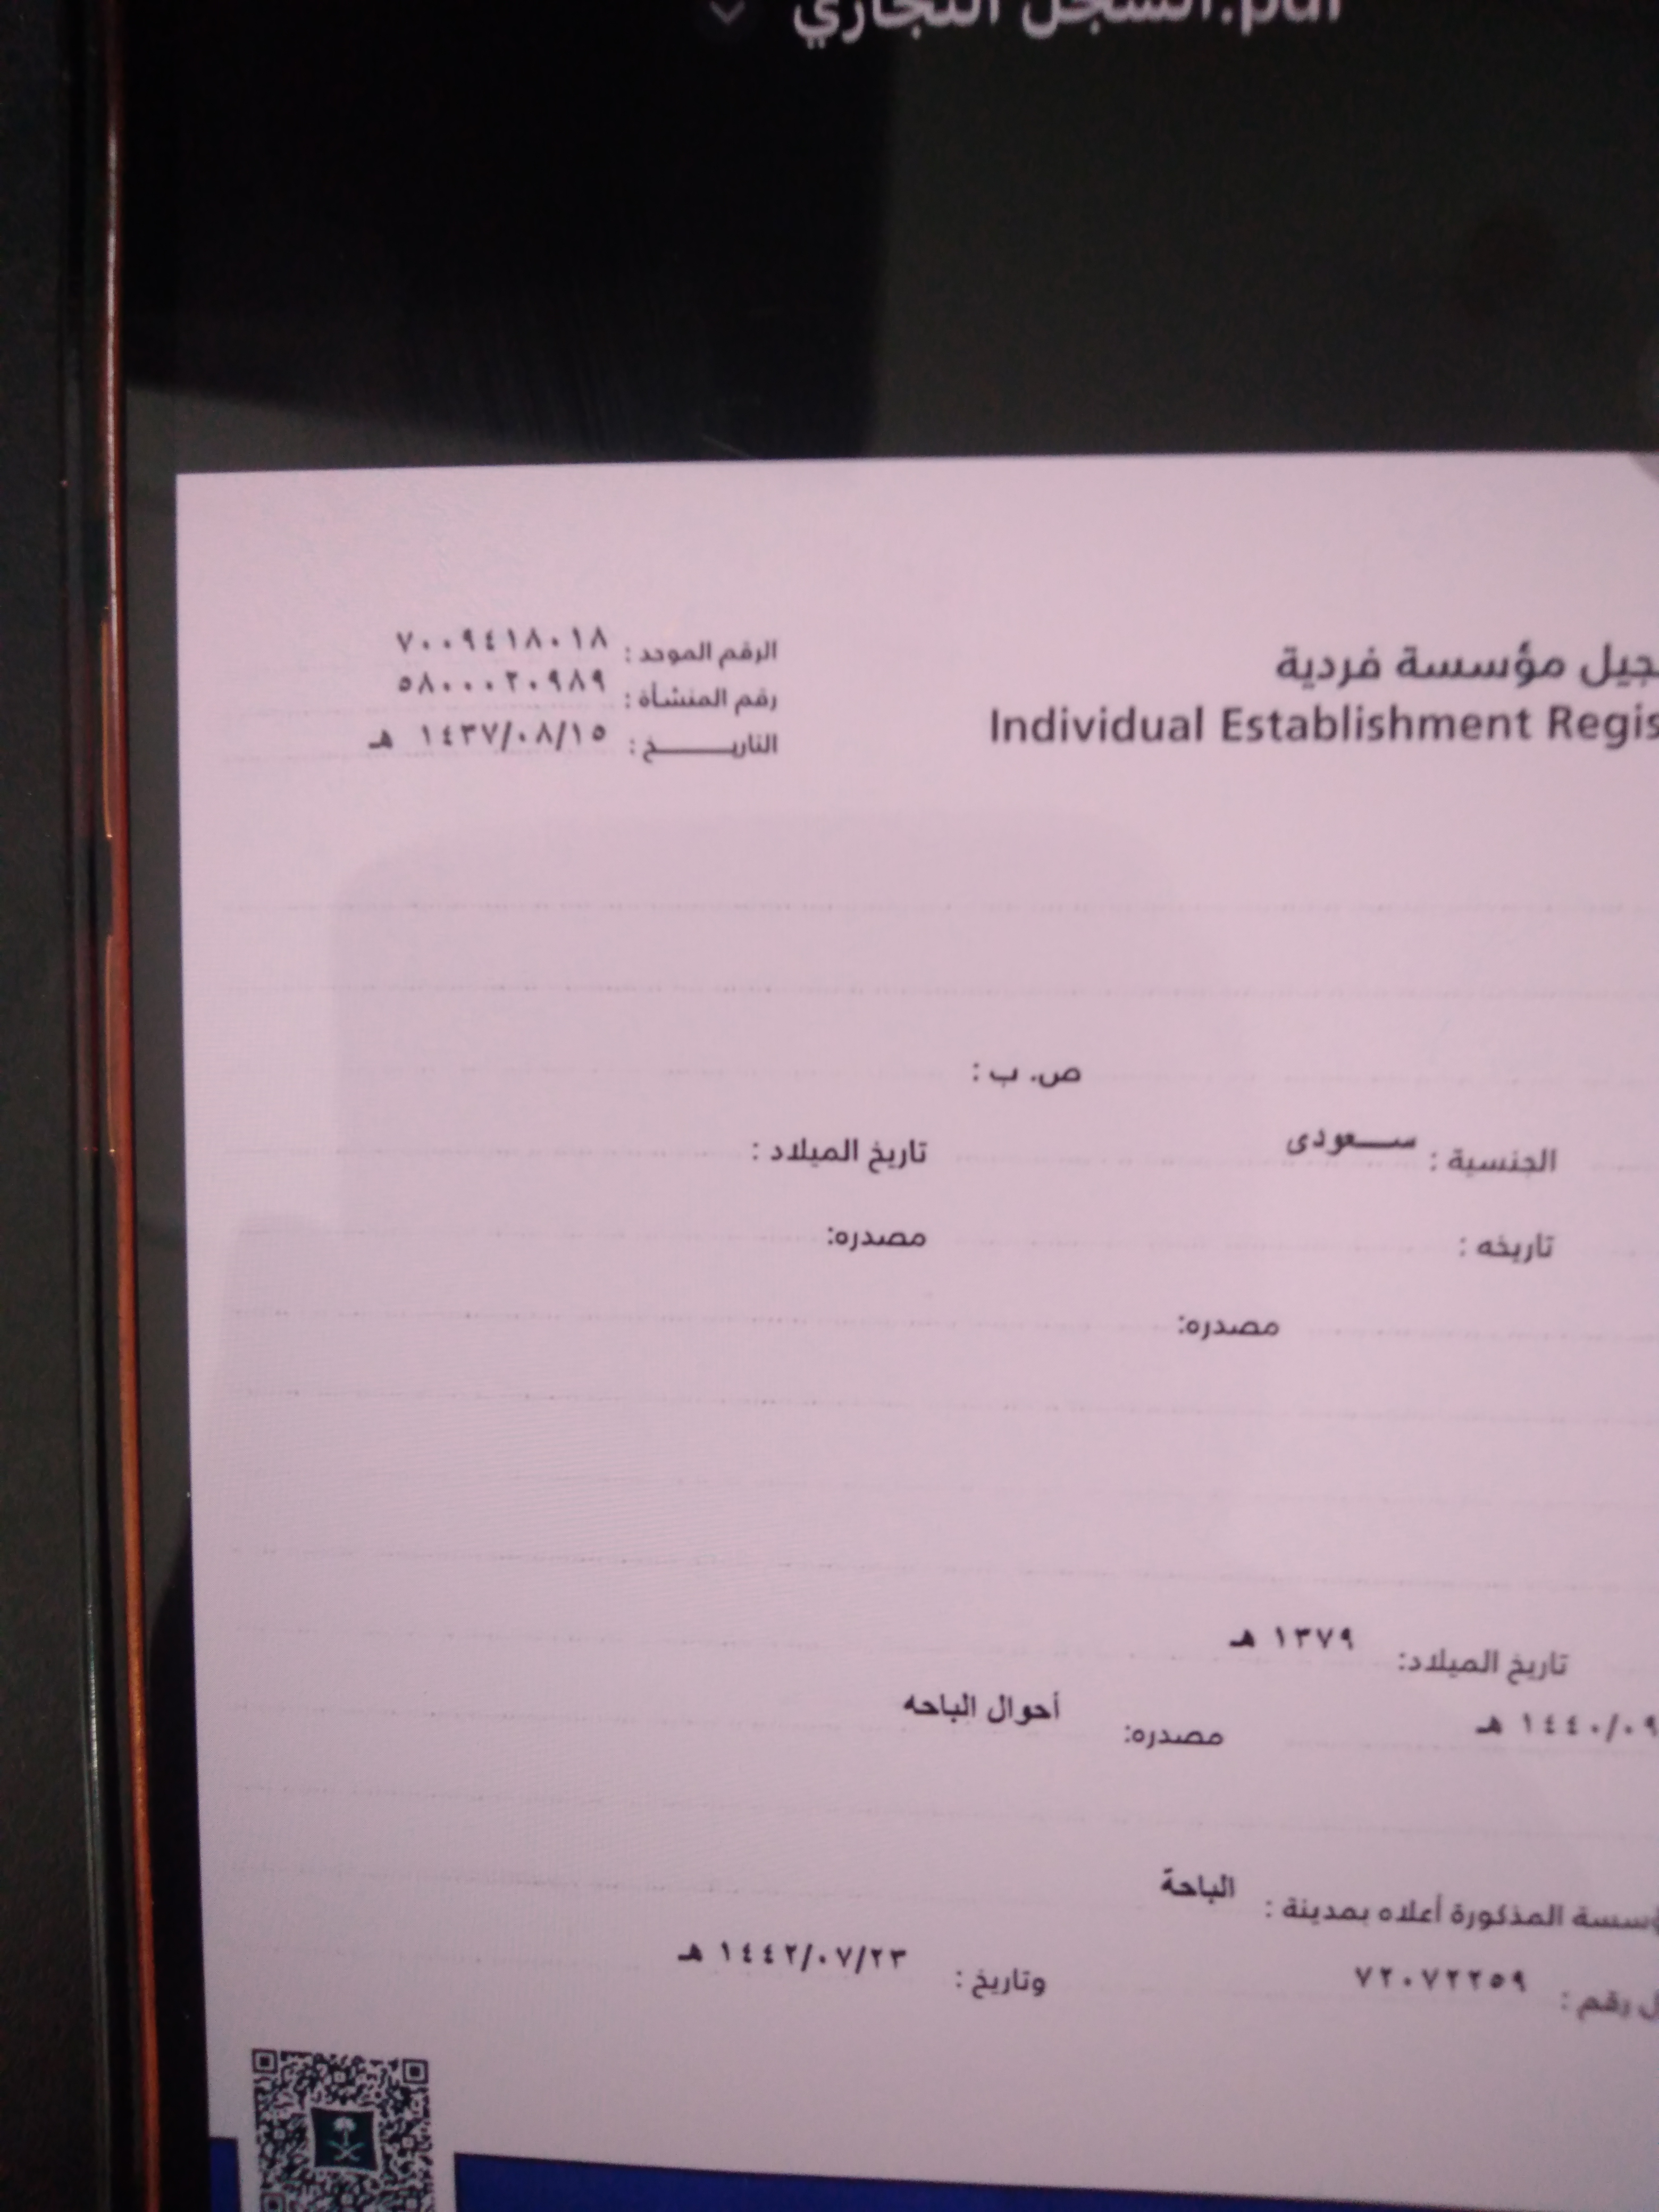 السجل التجاري.pdf
جيل مؤسسة فردية
Individual Establishment Regis
الرقم الموحد : ٧٠٠٩٤١٨٠١٨
رقم المنشأة : ٥٨٠٠٠٢٠٩٨٩
التاريـــــــخ : ١٤٣٧/٠٨/١٥ هـ
ص. ب :
الجنسية : ســـعودى
تاريخ الميلاد :
تاريخه :
مصدره:
مصدره:
تاريخ الميلاد: ١٣٧٩ هـ
١٤٤٠/٠٩ هـ
مصدره: أحوال الباحه
ؤسسة المذكورة أعلاه بمدينة : الباحة
ل رقم : ٧٢٠٧٢٢٥٩
وتاريخ : ١٤٤٢/٠٧/٢٣ هـ